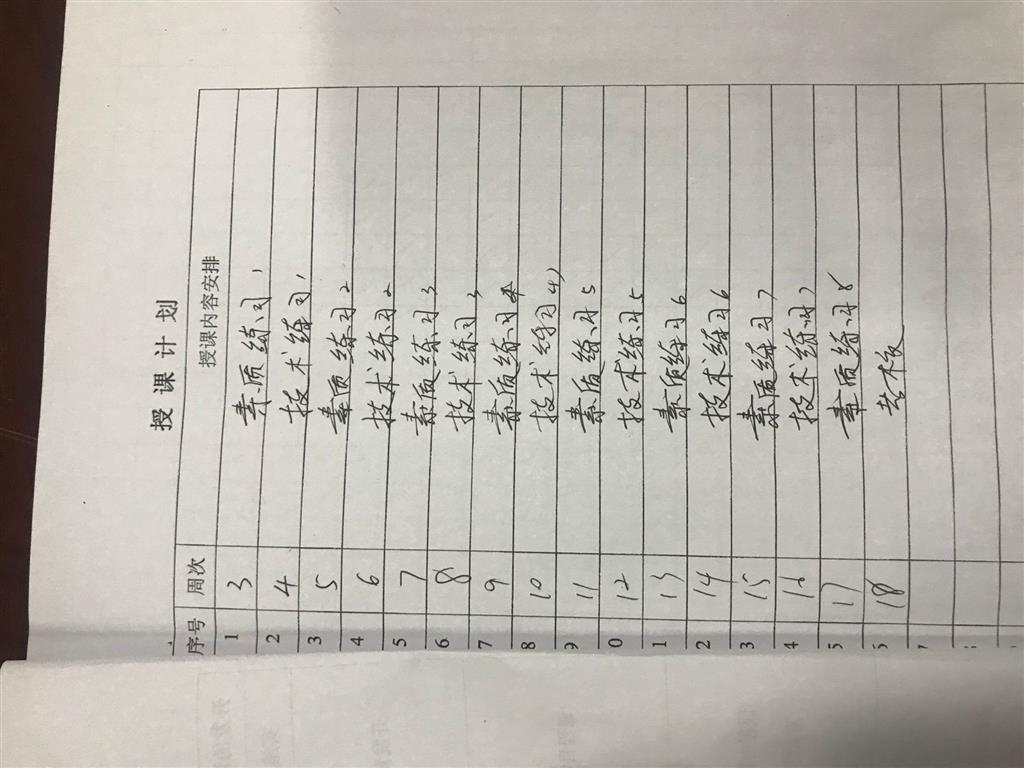 授课计划
序号 周次 授课内容安排
1 3 素质练习1
2 4 技术练习1
3 5 素质练习2
4 6 技术练习2
5 7 素质练习3
6 8 技术练习3
7 9 素质练习4
8 10 技术练习4
9 11 素质练习5
0 12 技术练习5
1 13 素质练习6
2 14 技术练习6
3 15 素质练习7
4 16 技术练习7
5 17 素质练习8
18 考核